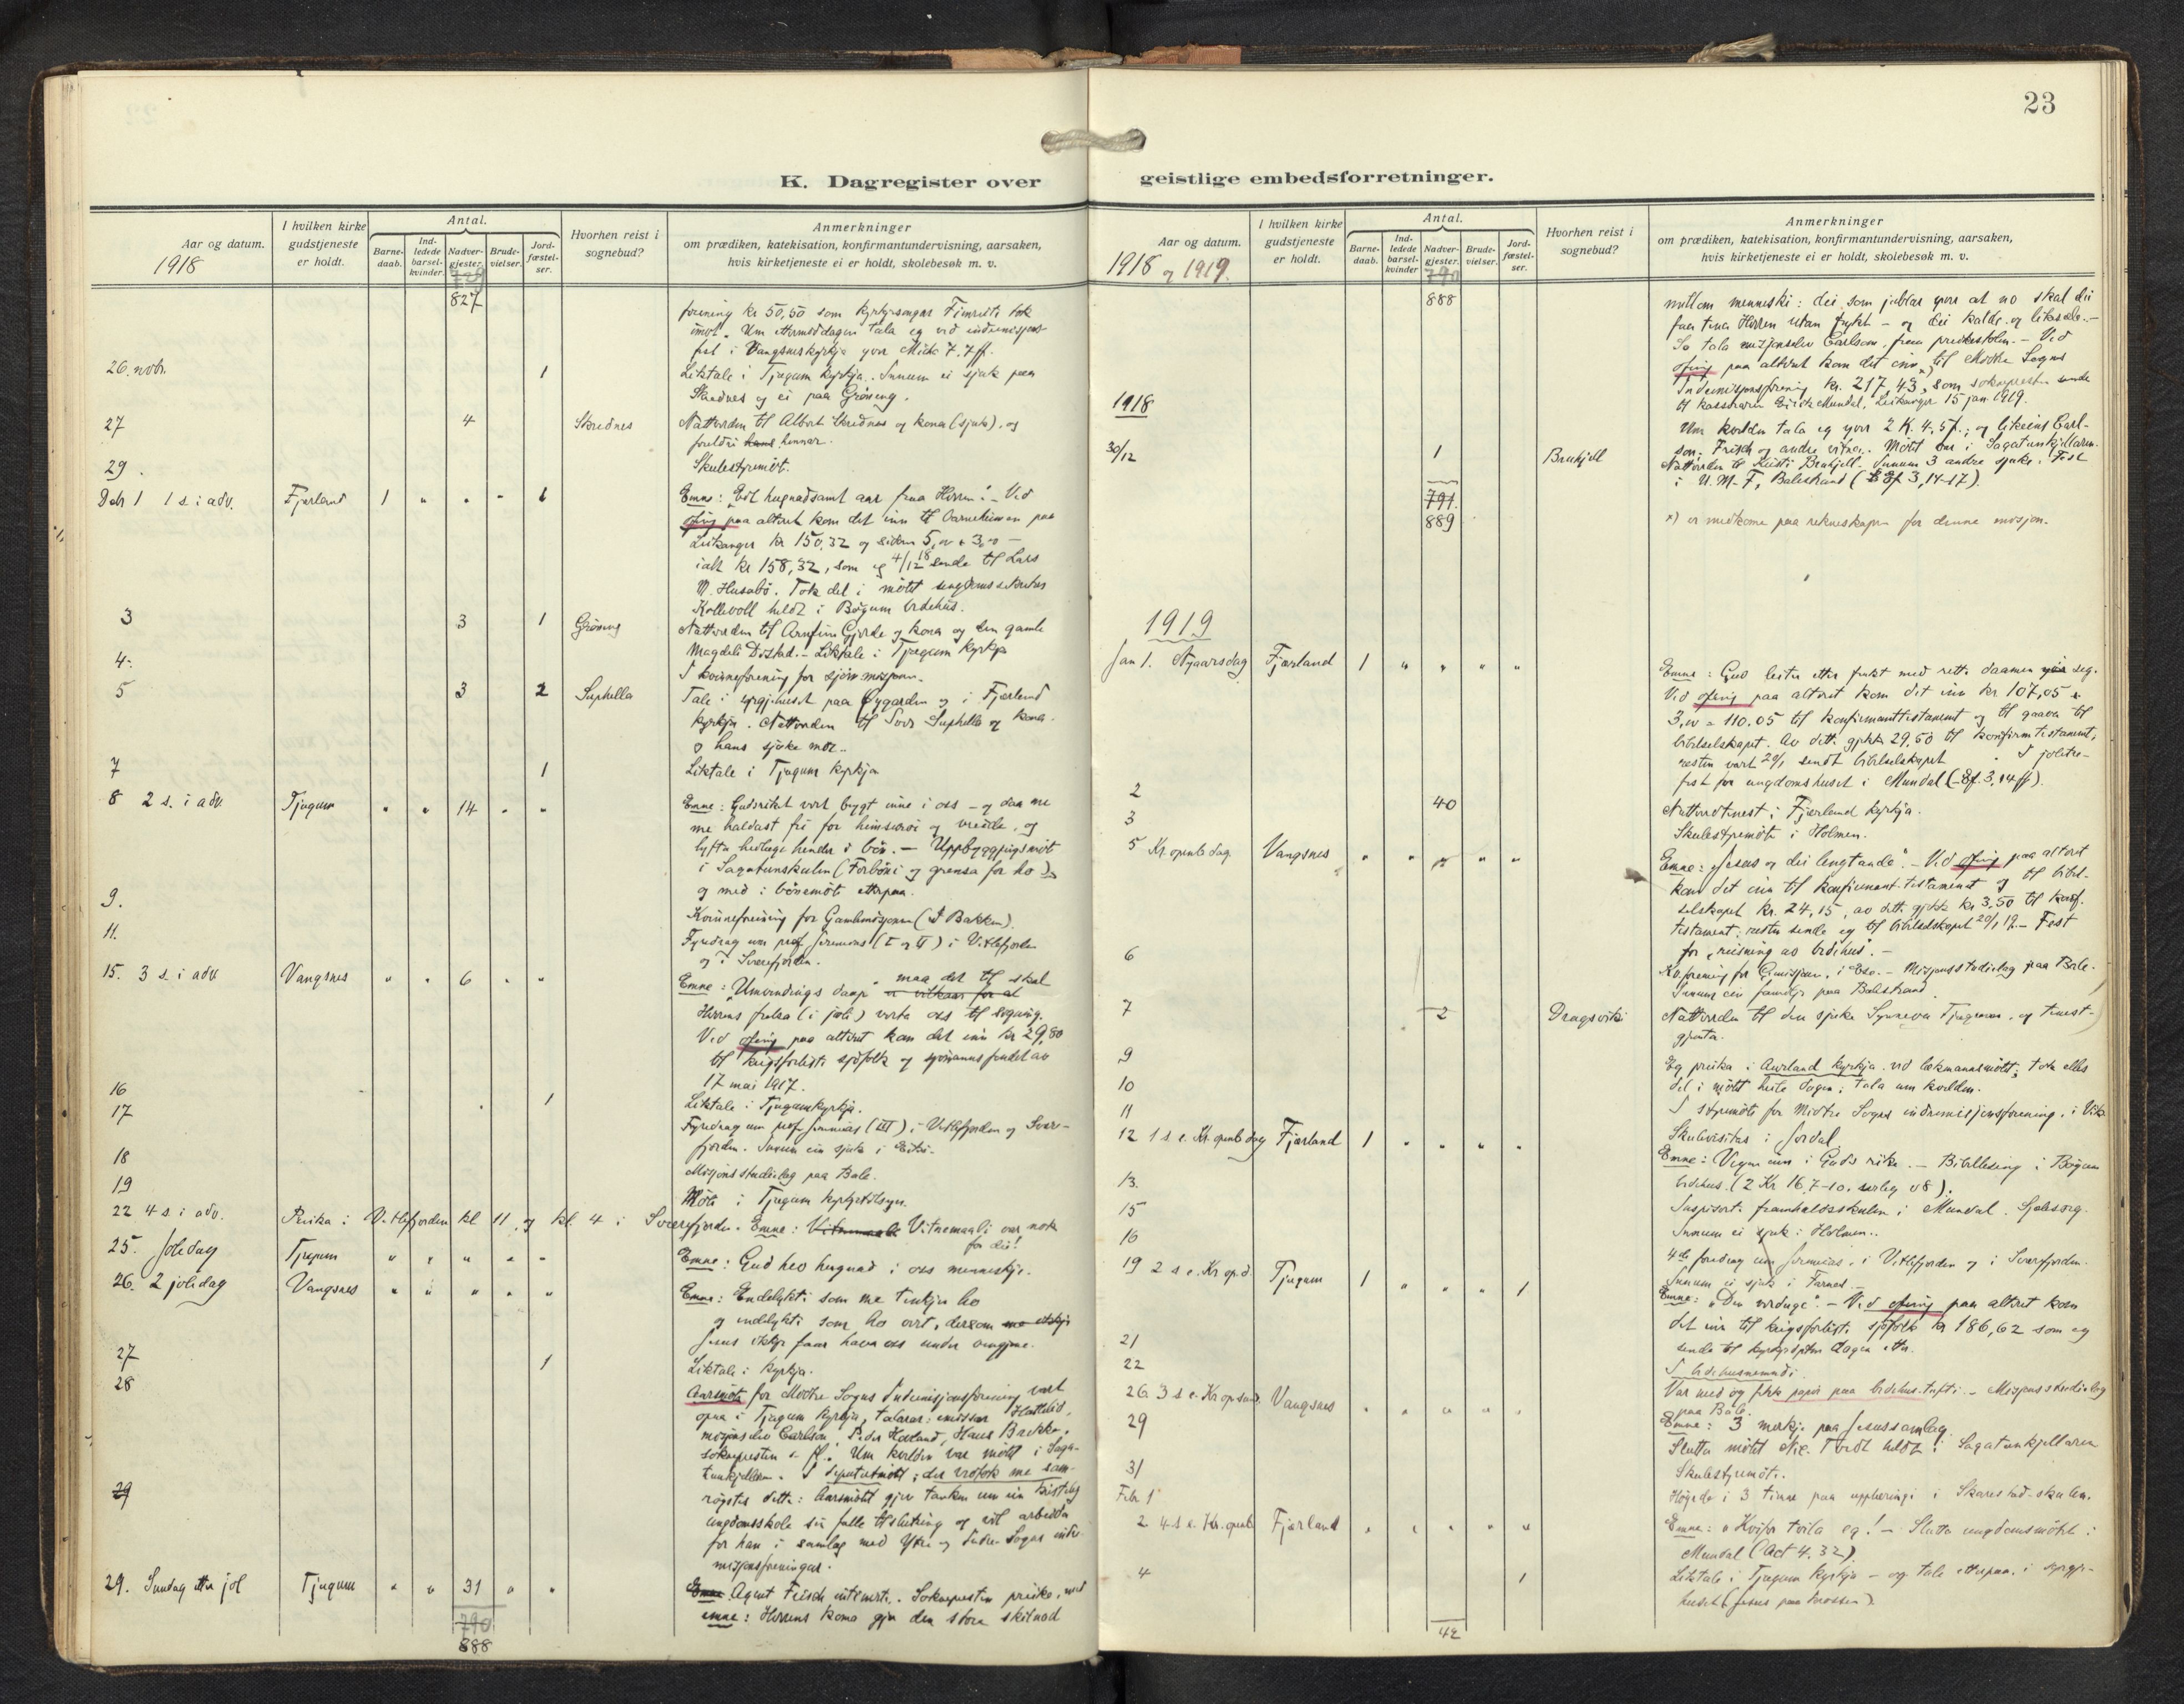 K. Dagregister over
Aar og datum.
1918
I hvilken kirke gudstjeneste er holdt.
Antal.
Barne-daab.
Ind-ledede barsel-kvinder.
Nadver-gjester.
Brude-vielser.
Jord-fæstel-ser.
Hvorhen reist i sognebud?
Anmerkninger
om prædiken, katekisation, konfirmantundervisning, aarsaken,
hvis kirketjeneste ei er holdt, skolebesøk m. v.
827
forening kr 50,50 som kyrkjesongar
imot. Um ettermiddagen tala eg ved indremisjons-
fest i Vangsneskyrkja yver Mika 7.7 ff.
26. novbr. 1 Liktale i Tjugum kyrkja. Innum ei sjuk paa
og ei paa Grøneng.
27 4 Skrednes Nattverden til Albert Skrednes og kona (sjuke), og
foreldri hennar.
29. Skulestyremøt.
Debr 1 1 s. i adv. Fjærland 1 " " " 1 Emne: Eit hugnadsamt aar fraa Herren. - Ved
ofring paa altaret kom det inn til barneheimen paa
Leikanger kr 150,32 og sidan
ialt kr 158,32, som eg 4/12 18 sende til Lars
M. Husabø. Tok del i møtet
heldt i Bøyum bedehus.
3 3 1 Grøneng Nattverden til Arnfinn Gjerde og kona og den gamle
Magdeli Distad. - Liktale i Tjugum kyrkja
4. I kvinneforening for sjømannsmisjonen.
5 3 2 Suphella Tale i syrgjehuset paa Øygarden og i Fjærland
kyrkja. Nattverden til Suphella og kona
o hans sjuke mor.
7 1 Liktale i Tjugum kyrkja
8 2 s. i adv Tjugum " " 14 " " Emne: Gudsriket vert bygt inne i oss - og daa me
me haldast fri for og vreide, og
lyfta heilage hender i bøn. - Uppbyggjingsmøt
i Sagatunskulen (Forbøni og grensa for ho)
og med i bønemøte etterpaa.
9. Kvinneforening for (I Bakken).
11. Fyredrag um prof Jeremias (I og II) i Vetlefjorden
og i Sværefjorden.
15. 3 s. i adv Vangsnes " " 6 " " Emne: "Umvendings daap" maa det til skal
Herrens frelsa (i joli) verta oss til signing.
Ved ofring paa altaret kom det inn kr 29,80
til krigsforliste sjøfolk og
17 mai 1917.
16 1 Liktale i Tjugumkyrkja.
17 Fyredrag um prof Jeremias (III) i Vetlefjorden og Svære-
fjorden. Innum ein sjuk i
18 Misjonsstudielag paa Bale.
19 Møte i Tjugum kyrkjetilsyn.
22 4 s. i adv. Preika i Vetlefjorden kl 11 og kl. 4 i Sværefjorden. Emne: Vitnemaali var nok
for dei!
25. Joledag Tjugum " " " " " Emne: Gud hev hugnad i oss menneskje.
26. 2 joledag Vangsnes " " " " " Emne: Endelykti som me tenkjer ho
og endelykti som ho vert, dersom
Jesus ikkje faar hava oss under umgjerne.
27 1 Liktale i kyrkja.
28 Aarsmøte for Midtre Sogns Indremisjonsforening vart
opna i Tjugum kyrkja, talarar: emissær Hattelid,
misjonselev Carlson, Peder Hovland, Hans Brekke,
soknepresten o. fl. Um kvelden var møtet i Saga-
tunkjellaren. I deputertmøtet; der vedtok me sam-
røystes dette: Aarsmøtet gjev tanken um ein kristeleg
29 ungdomsskole sin fulle tilslutning og vil arbeida
for han i samlag med Ytre og Indre Sogns indre-
misjonsforeningar.
29. Sundag etter jol Tjugum " " 31 " " Agent Frisch Soknepresten preika, med
emne: Herrens koma gjer den store skilnad
790
888
23
geistlige embedsforretninger.
Aar og datum.
1918 og 1919.
I hvilken kirke gudstjeneste er holdt.
Antal.
Barne-daab.
Ind-ledede barsel-kvinder
Nadver-gjester.
Brude-vielser.
Jord-fæstel-ser.
Hvorhen reist i sognebud?
Anmerkninger
om prædiken, katekisation, konfirmantundervisning, aarsaken,
hvis kirketjeneste ei er holdt, skolebesøk m. v.
790
888
millom menneski: dei som jublar yver at no skal dei
faa tena Herren utan frykt - og dei kalde og likesæle. -
So tala misjonselev Carlson, fraa preikestolen. - Ved
ofring paa altaret kom det inn x) til Midtre Sogns
Indremisjonsforening kr. 217,43, som soknepresten sende
til kasseraren Eirik Mundal, Leikanger 15 jan. 1919.
1918
Um kvelden tala eg yver 2 K. 4. 5 f.; og likeins Carl-
son, Frisch og andre vitna. Møtet var i Sagatunkjellaren.
30/12 1 Brekjell Nattverden til Kristi Brekjell. Innum 3 andre sjuke. Fest
i U. M. F, Balestrand (Ef 3,14-17).
791.
889
x) er medkome paa rekneskapen for denne misjon.
1919
Jan 1. Nyaarsdag Fjærland 1 " " " " Emne: Gud leitar etter frukt med rette daamen seg.
Ved ofring paa altaret kom det inn kr 107,05 +
3,00 = 110.05 til konfirmanttestament og til gaava til
bibelselskapet. Av dette gjekk 29,50 til konfirm. testament,
resten vart 20/1 sendt bibelselskapet. I joletre-
fest for ungdomshuset i Mundal (Ef. 3,14 ff).
2 40 Nattverdtenest i Fjærland kyrkja.
3 Skulestyremøte i Holmen.
5 Kr. openb. dag. Vangsnes " " " " " Emne: Jesus og dei lengtande". - Ved ofring paa altaret
kom det inn til konfirmant-testament og til bibel-
selskapet kr. 24,15, av dette gjekk kr 3,50 til konf.
testament; resten sende eg til bibelselskapet 20/1 19. - Fest
for "reisning av bedehus". -
6 Kv.forening for i Ese. - Misjonsstudielag paa Bale.
Innum ein familje paa Balestrand.
7 2 Dragsviki Nattverden til den sjuke Synneva Tjugum, og tenest-
gjenta.
9 Eg preika i Aurland kyrkja ved lekmannsmøtet; tok elles
10 del i møtet heile dagen; tala um kvelden.
11 I styremøte for Midtre Sogns indremisjonsforening, i Vik
12 1 s. e. Kr. openb dag Fjærland 1 " " " " Skulevisitas i Jordal.
Emne: Vegen inn i Guds rike. - Bibellesing i Bøyum
bedehus. (2 Kr 16,7-10, serleg v8).
13.
15 framhaldsskulen i Mundal. Sjelesorg.
16 Innum ei sjuk i Holmen.
4de foredrag um Jeremias, i Vetlefjorden og i Sværefjorden.
19 2 s e. Kr op.d. Tjugum 1 " " " 1 Innum ei sjuk i Farnes. -
Emne: "Den verduge". - Ved ofring paa altaret kom
det inn til krigsforliste sjøfolk kr 186,62 som eg
21 sende til dagen etter.
22 I bedehusnemndi.
Var med og fekk papir paa bedehus-tufti. - Misjonsstudielag
paa Bale.
26 3 s e. Kr opb.d Vangsnes " " " " " Emne: 3 merkje paa Jesussamlag.
29 Slutta møtet Nic. Tvedt heldt i Sagatunkjellaren
31 Skulestyremøte.
Febr 1 Høyrde i 3 timar paa upplæringi i Skarestad-skulen.
2 4 s e. Kr. openb Fjærland " " " " " Emne: "Kvifor tvila eg! - Slutta ungdomsmøtet i
Mundal (Act 4.32)
4 1 Liktale i Tjugum kyrkja - og tale etterpaa i syrgje-
huset (Jesus paa krossen).
42